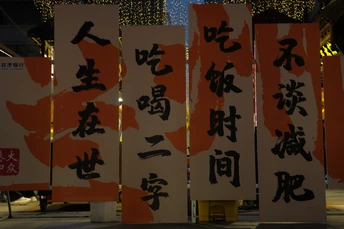 人生在世
吃喝二字
吃饭时间
不谈减肥
大众